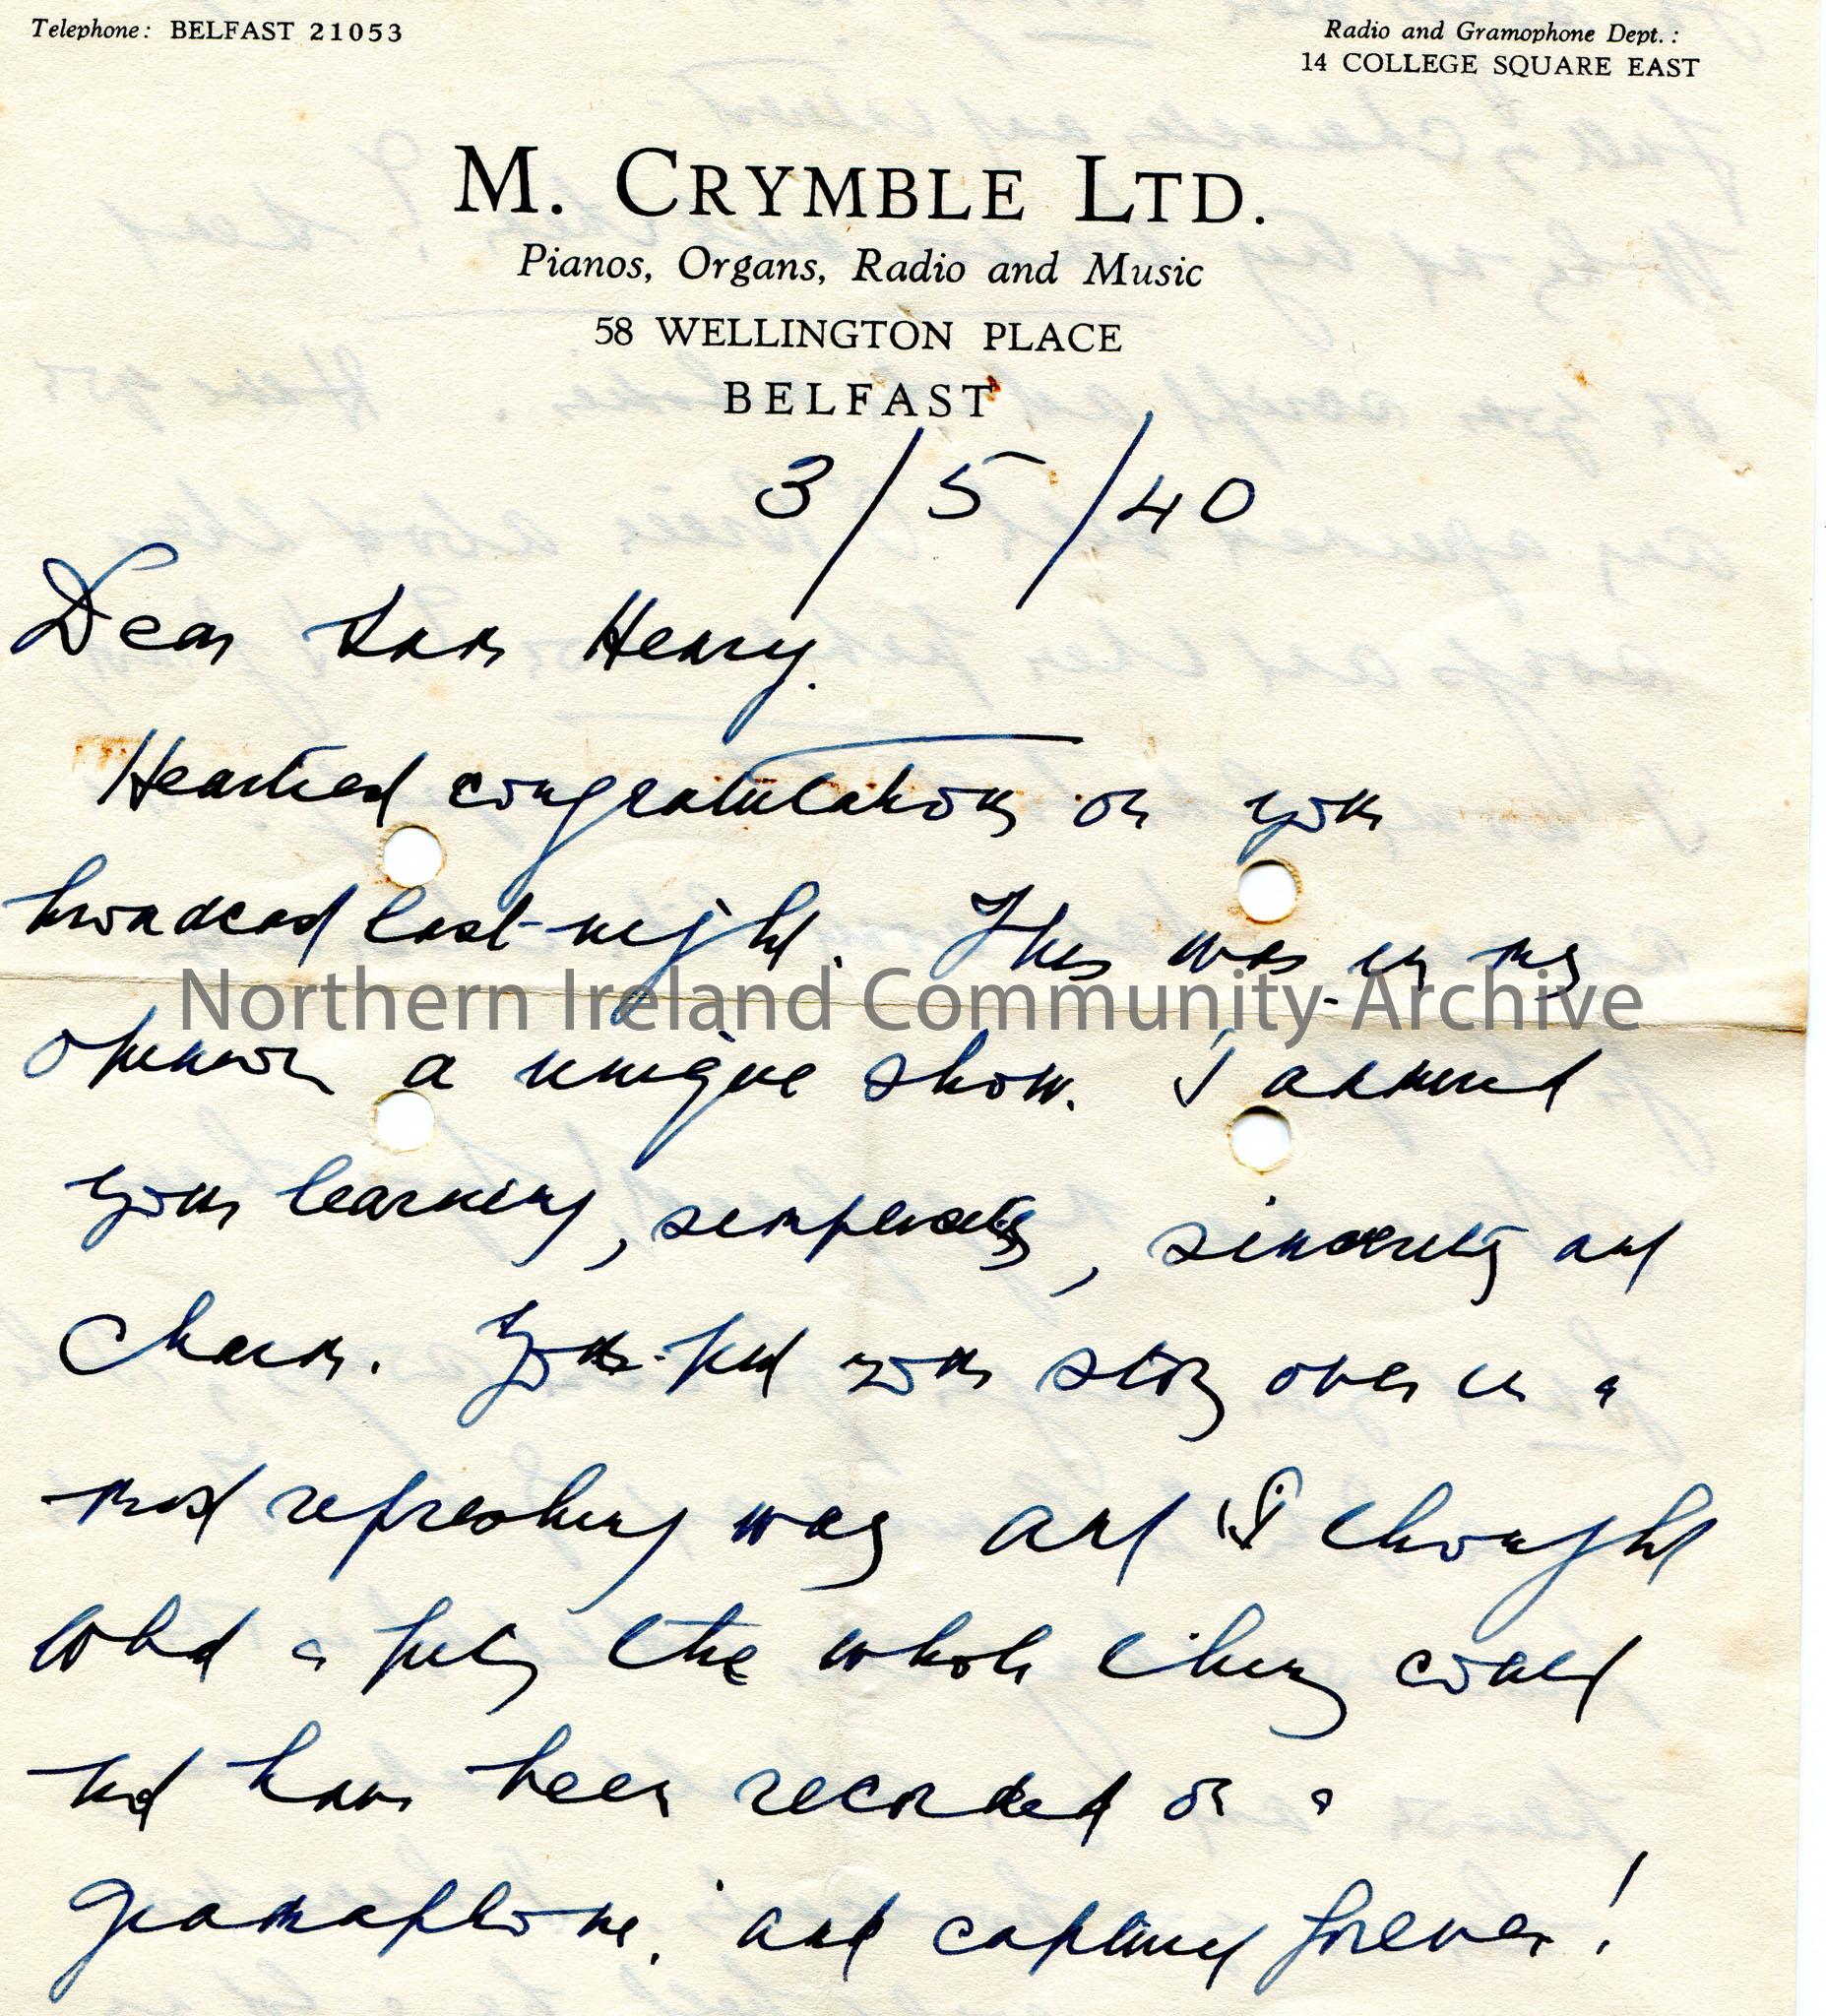 Telephone: BELFAST 21053
Radio and Gramophone Dept.:
14 COLLEGE SQUARE EAST
M. CRYMBLE LTD.
Pianos, Organs, Radio and Music
58 WELLINGTON PLACE
BELFAST
3/5/40
Dear Sam Henry.
Heartiest congratulations on your
broadcast last-night. This was in my
opinion a unique show. I admired
your learning, simplicity, sincerity and
charm. You put your story over in a
most refreshing way and I thought
what a pity the whole thing could
not have been recorded on a
gramophone. and captured forever!
Northern Ireland Community Archive